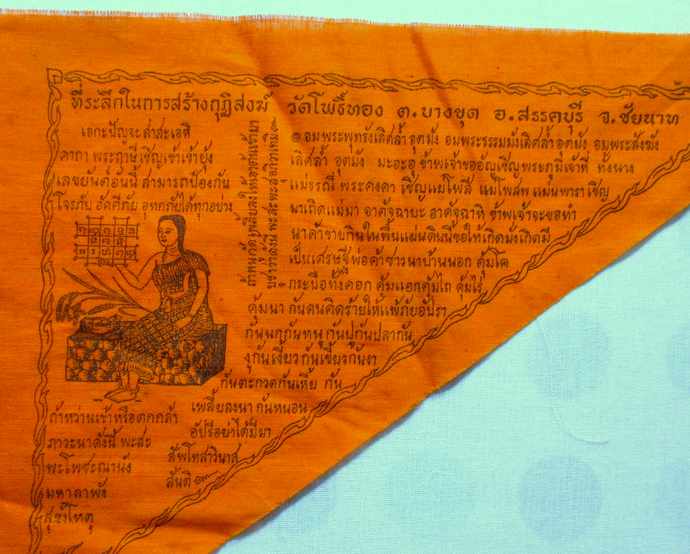 ที่ระลึกในการสร้างกุฏิสงฆ์ วัดโพธิ์ทอง ต.บางขุด อ.สรรคบุรี จ.ชัยนาท
เอกะปัญจะ ล่ำสะเอสิ
คาถา พระฤๅษี เชิญเข้าเข้ายุ้ง
เลขยันต์อันนี้ สามารถป้องกัน
โจรภัย อัคคีภัย อุทกภัยได้ทุกอย่าง
อมพระพุทธังเลิศล้ำอุดมัง อมพระธรรมมังเลิศล้ำอุดมัง อมพระสังฆัง
เลิศล้ำ อุดมัง มะอะอุ ข้าพเจ้าขออัญเชิญพระภูมิเจ้าที่ ทั้งนาง
แม่ธรณี พระคงคา เชิญแม่โพสี แม่โพสพ แม่นพดารา เชิญ
มาเถิดแม่มา อาคัจฉายะ อาคัจฉาหิ ข้าพเจ้าจะขอทำ
นาค้าขายกินในพื้นแผ่นดินนี้ขอให้เกิดมั่งเกิดมี
เป็นเศรษฐีพ่อค้าชาวนาบ้านนอก คุ้มโค
กระบือทั้งคอก คุ้มแอกคุ้มไถ คุ้มไร่
คุ้มนา กันคนคิดร้ายให้แพ้ภัยอัปรา
กันนกกันหนู กันปูกันปลากัน
งูกันเงี้ยวกันเขี้ยวกันงา
กันตะกวดกันเหี้ย กัน
เพลี้ยลงนา กันหนอน
อัปรีอย่าได้มีมา
สัพโทสาวินาส
สันติ
ถ้าหว่านเข้าหรือตกกล้า
ภาวะนาดังนี้ พะสะ
พะโพชะณานัง
มหาลาพัง
สุขังโหตุ